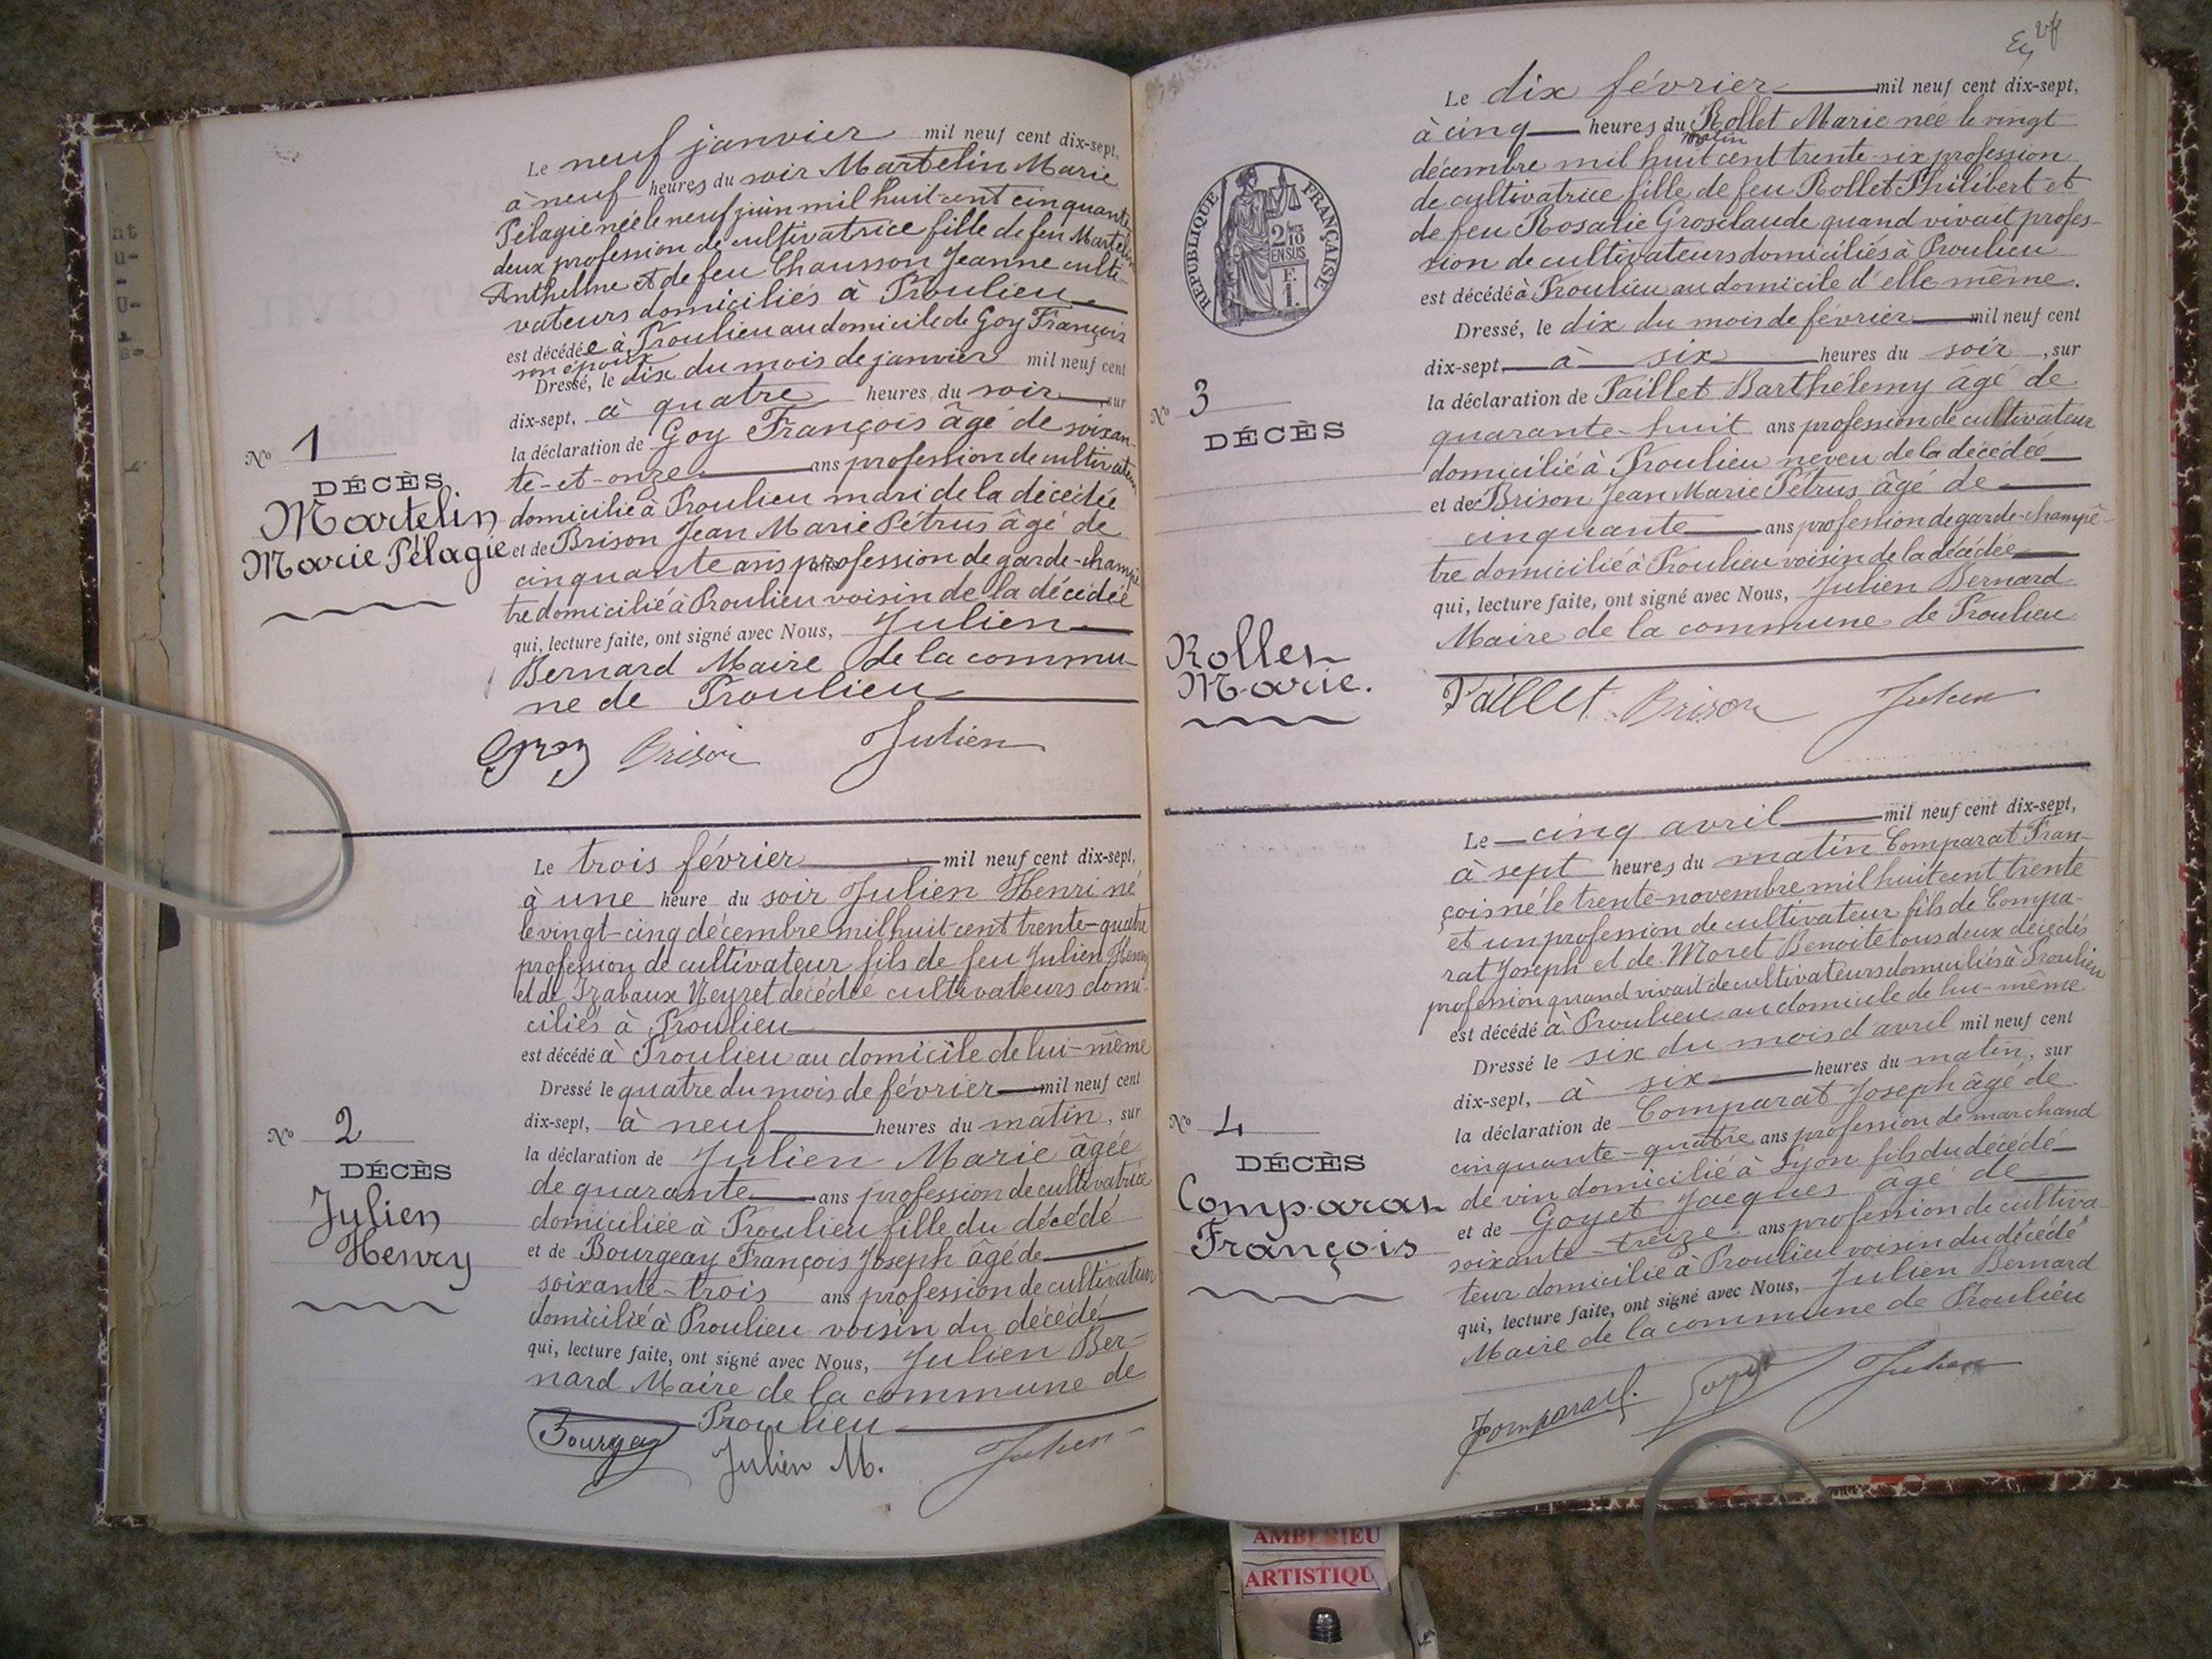 Le neuf janvier mil neuf cent dix-sept,
à neuf heures du soir Martelin Marie
Pélagie née le neuf juin mil huit cent cinquante
deux profession de cultivatrice fille de feu Martelin
Anthelme et de feu Chausson Jeanne culti-
vateurs domiciliés à Proulieu
est décédée à Proulieu au domicile de Goy François
son époux
Dressé, le dix du mois de janvier mil neuf cent
dix-sept, à quatre heures du soir, sur
la déclaration de Goy François âgé de soixan-
te-et-onze ans profession de cultivateur
domicilié à Proulieu mari de la décédée
et de Brison Jean Marie Pétrus âgé de
cinquante ans profession de garde-champê
tre domicilié à Proulieu voisin de la décédée
qui, lecture faite, ont signé avec Nous, Julien
Bernard Maire de la commu-
ne de Proulieu
Goy Brison Julien
No 1
DÉCÈS
Martelin
Marie Pélagie
Le trois février mil neuf cent dix-sept,
à une heure du soir Julien Henri né
le vingt-cinq décembre mil huit cent trente-quatre
profession de cultivateur fils de feu Julien Henry
et de Izabaux Neyret décédée cultivateurs domi-
ciliés à Proulieu
est décédé à Proulieu au domicile de lui-même
Dressé le quatre du mois de février mil neuf cent
dix-sept, à neuf heures du matin, sur
la déclaration de Julien Marie âgée
de quarante ans profession de cultivatrice
domiciliée à Proulieu fille du décédé
et de Bourgeay François Joseph âgé de
soixante-trois ans profession de cultivateur
domicilié à Proulieu voisin du décédé
qui, lecture faite, ont signé avec Nous, Julien Ber-
nard Maire de la commune de
Proulieu
Bourgeay Julien M. Julien
No 2
DÉCÈS
Julien
Henry
Le dix février mil neuf cent dix-sept,
à cinq heures du matin Rollet Marie née le vingt
décembre mil huit cent trente-six profession
de cultivatrice fille de feu Rollet Philibert et
de feu Rosalie Grosclaude quand vivait profes-
sion de cultivateurs domiciliés à Proulieu
est décédé à Proulieu au domicile d'elle même.
Dressé, le dix du mois de février mil neuf cent
dix-sept, à six heures du soir, sur
la déclaration de Paillet Barthélemy âgé de
quarante-huit ans profession de cultivateur
domicilié à Proulieu neveu de la décédée
et de Brison Jean Marie Pétrus âgé de
cinquante ans profession de garde-champê-
tre domicilié à Proulieu voisin de la décédée
qui, lecture faite, ont signé avec Nous, Julien Bernard
Maire de la commune de Proulieu
Paillet Brison Julien
RÉPUBLIQUE FRANÇAISE
2/10
EN SUS
No 3
DÉCÈS
Rollet
Marie.
Le cinq avril mil neuf cent dix-sept,
à sept heures du matin Comparat Fran-
çois né le trente novembre mil huit cent trente
et un profession de cultivateur fils de Compa-
rat Joseph et de Moret Benoite tous deux décédés
profession quand vivait de cultivateurs domiciliés à Proulieu
est décédé à Proulieu au domicile de lui-même
Dressé le six du mois d'avril mil neuf cent
dix-sept, à six heures du matin, sur
la déclaration de Comparat Joseph âgé de
cinquante-quatre ans profession de marchand
de vin domicilié à Lyon fils du décédé
et de Goyet Jacques âgé de
soixante-treize ans profession de cultiva-
teur domicilié à Proulieu voisin du décédé
qui, lecture faite, ont signé avec Nous, Julien Bernard
Maire de la commune de Proulieu
Comparat Goyet Julien
No 4
DÉCÈS
Comparat
François
AMBERIEU
ARTISTIQU